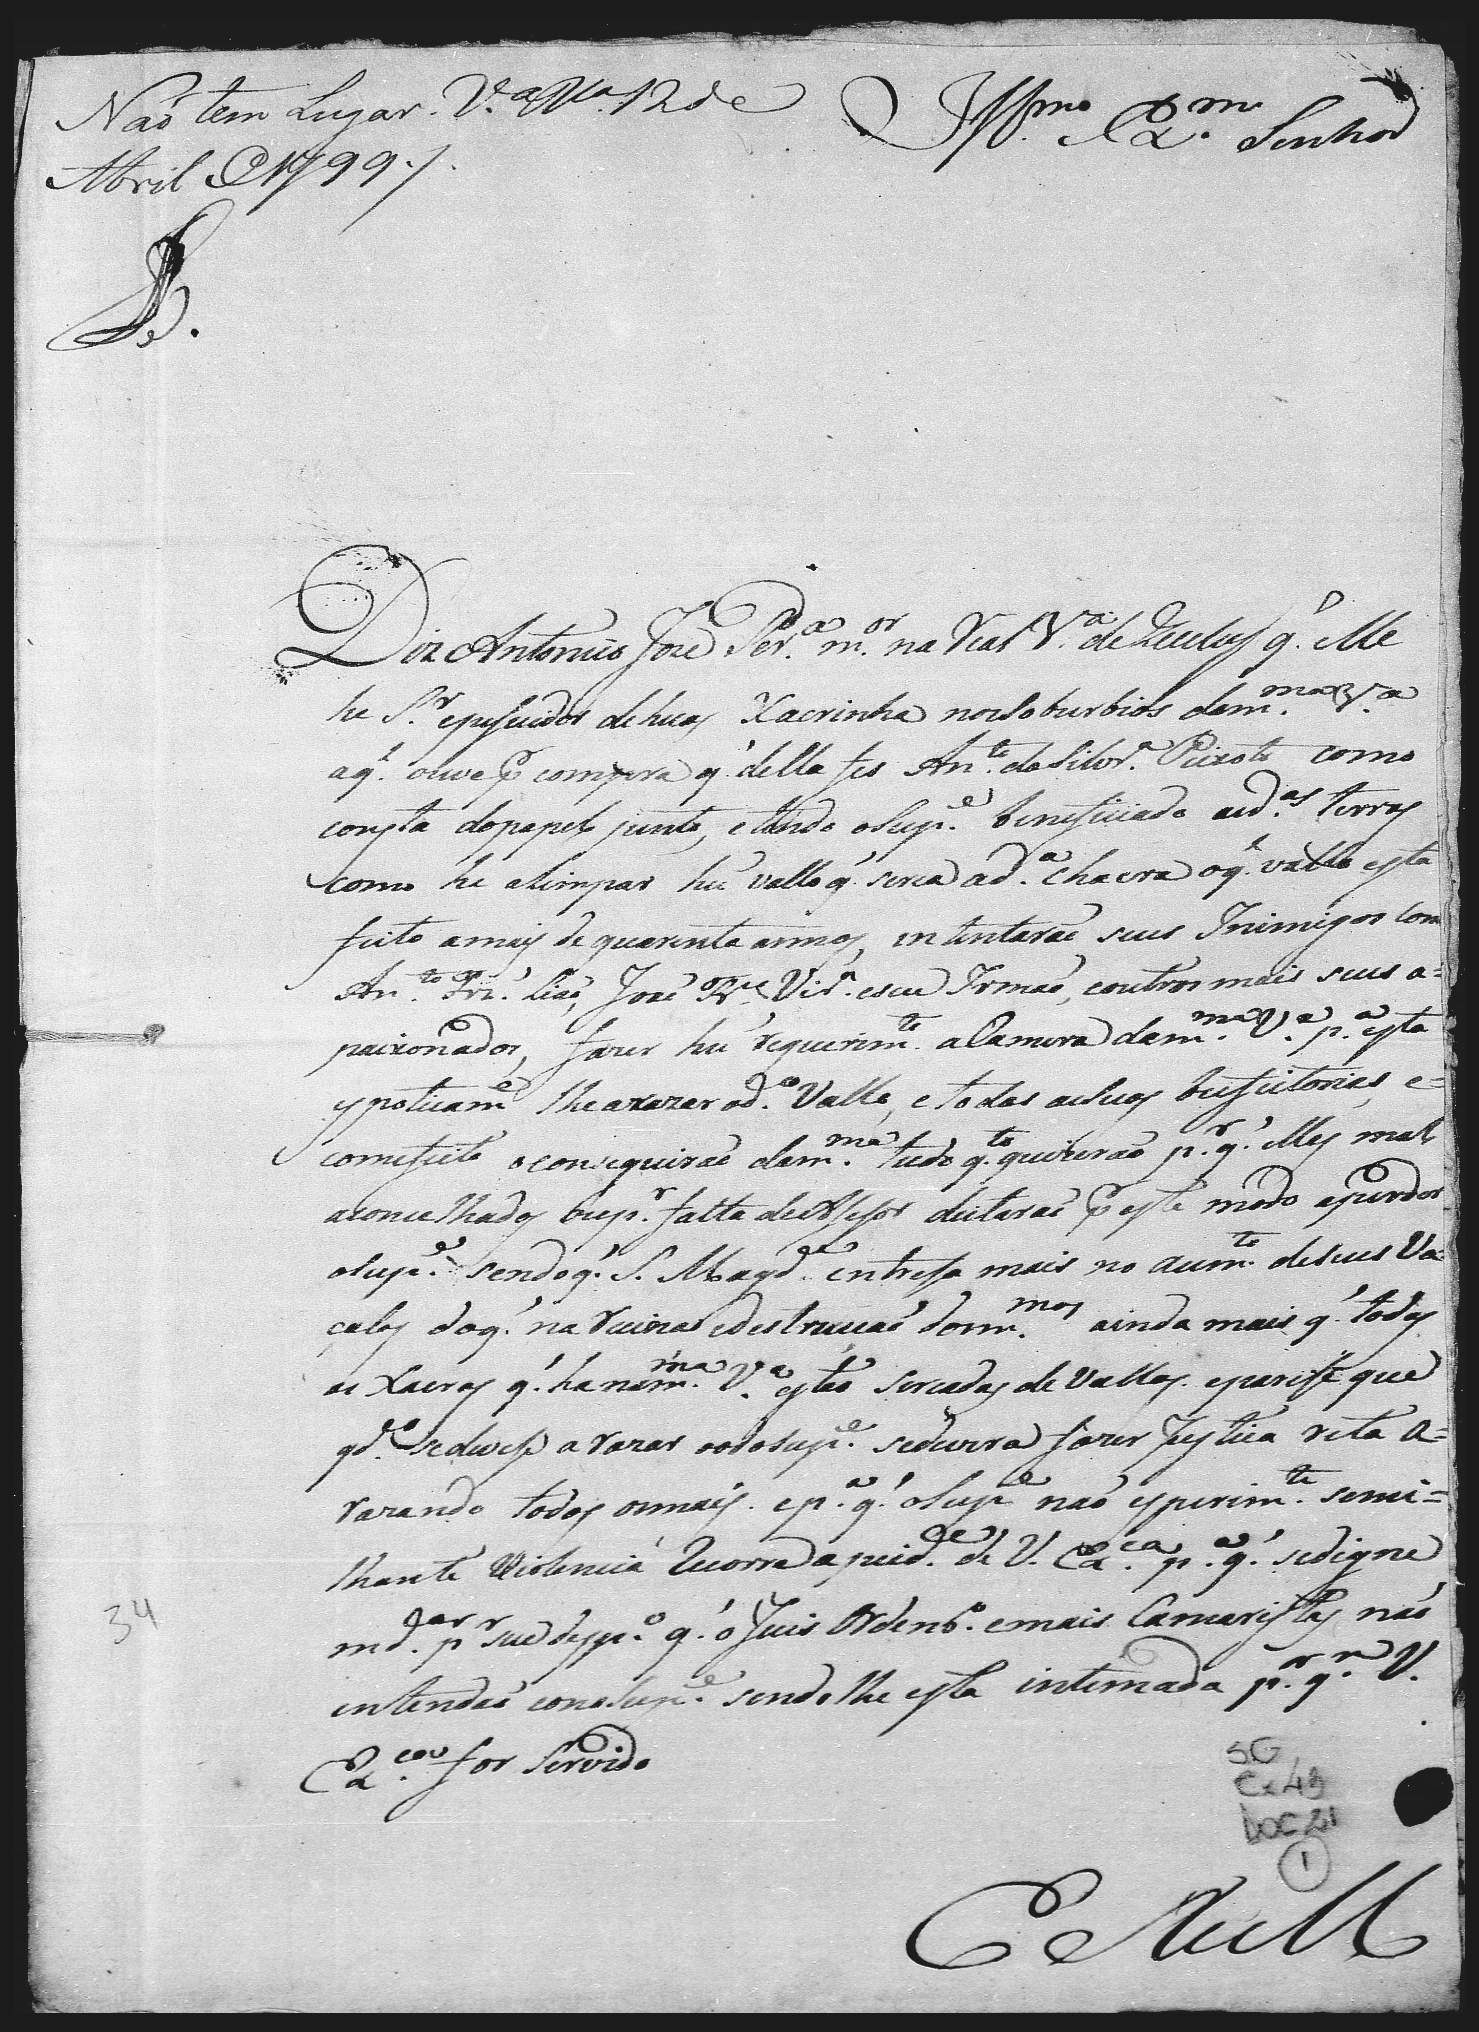 Não tem Lugar. V.ª R.ca 12 de
Abril de 1799./.
Illmo e Exmo Senhor
Diz Antonio Jozé Per.ª m.or na Real V.ª de Queluz q.' elle
he S.r e pusuidor de huã Xacrinha nos soburbios dam.ma V.ª
a q.l ouve p compra q' della fes An.to da Silvr.ª Peixoto como
consta do papel junto, e tendo o Sup.e beneficiado as d.as terras
como he alimpar hũ vallo q' serca a d.ª Chacra o q.l vallo esta
feito a mais de quarenta annos, intentarão seus Inimigos com
An.to Frz.' Lião, José Rz.' Vir.ª e seu Irmão, e outros mais seus a=
paixonados, fazer hũ requerim.to a Camera da m.ma V.ª p.ª esta
espoticam.e lhe arazar o d.o Vallo, e todas as suas bemfeitorias, e=
com efeito o conseguirão da m.ma tudo q.to quizerão p.r q.' elles mal
aconcelhados ou p.r falta de Asesor deitarão p este modo a perdor
o Sup.e sendo q.' S. Magd.e intresa mais no aum.to de seus Va=
çalos do q.' na ruina e destruição do m.mos ainda mais q.' todas
as Xacras q.' ha na m.ma V.ª estão sercadas de Vallos. e parese que
qd.o se devese a razar o do Sup.e se devira fazer Justiça reta a=
razando todos os mais. e p.ª q.' o Sup.e não esperim.te semi=
lhante Violencia Recorre a pied.e de V. Ex.ca p.ª q.' se digne
md.ar p.r seu desp.o q.' o Juis Orden.o e mais Camaristas não
intendão com o Sup.e sendo lhe esta intimada p.r q.m V.
Ex.ca for Servido
E R M
34
SG
Cx 49
DOC 21
1